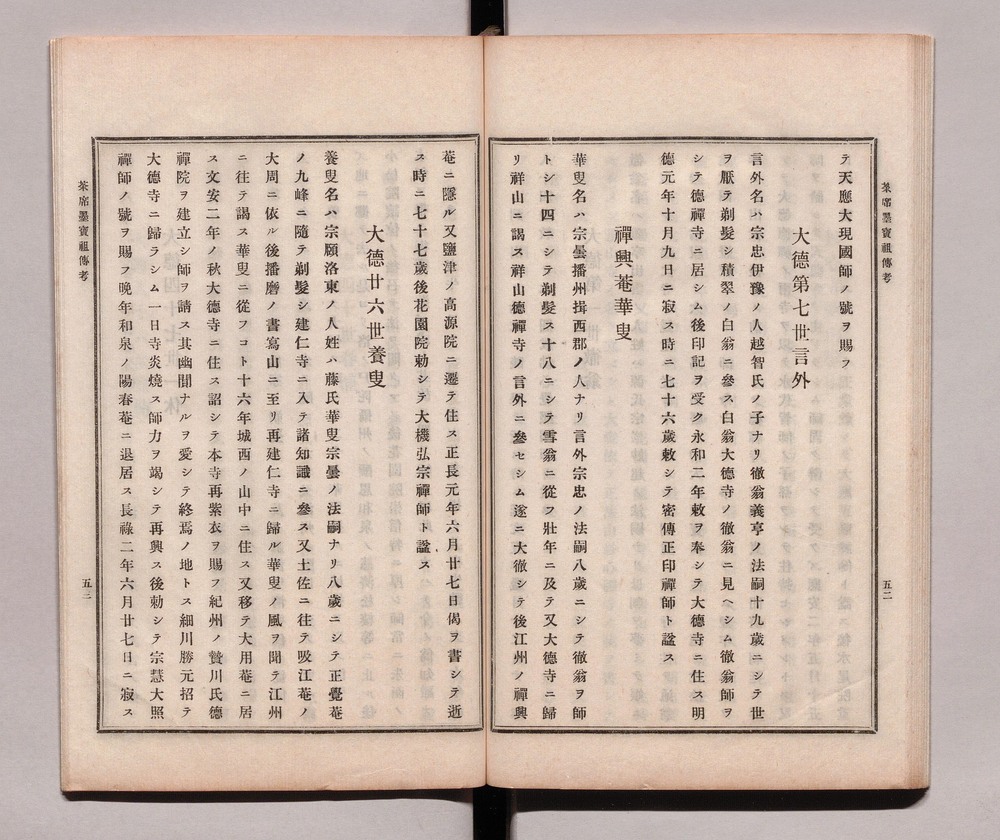 茶席墨寶祖傳考
五二
テ天應大現國師ノ號ヲ賜フ
大德第七世言外
言外名ハ宗忠伊豫ノ人越智氏ノ子ナリ徹翁義亨ノ法嗣十九歲ニシテ世
ヲ厭テ剃髮シ積翠ノ白翁ニ參ス白翁大德寺ノ徹翁ニ見ヘシム徹翁師ヲ
シテ德禪寺ニ居シム後印記ヲ受ク永和二年敕ヲ奉シテ大德寺ニ住ス明
德元年十月九日ニ寂ス時ニ七十六歲敕シテ密傳正印禪師ト諡ス
禪興菴華叟
華叟名ハ宗曇播州揖西郡ノ人ナリ言外宗忠ノ法嗣八歲ニシテ徹翁ヲ師
トシ十四ニシテ剃髮ス十八ニシテ雪翁ニ從フ壯年ニ及テ又大德寺ニ歸
リ祥山ニ謁ス祥山德禪寺ノ言外ニ參セシム遂ニ大徹シテ後江州ノ禪興
菴ニ隱ル又鹽津ノ高源院ニ遷テ住ス正長元年六月廿七日偈ヲ書シテ逝
ス時ニ七十七歲後花園院勅シテ大機弘宗禪師ト諡ス
大德廿六世養叟
養叟名ハ宗願洛東ノ人姓ハ藤氏華叟宗曇ノ法嗣ナリ八歲ニシテ正覺菴
ノ九峰ニ隨テ剃髮シ建仁寺ニ入テ諸知識ニ參ス又土佐ニ往テ吸江菴ノ
大周ニ依ル後播磨ノ書寫山ニ至リ再建仁寺ニ歸ル華叟ノ風ヲ聞テ江州
ニ往テ謁ス華叟ニ從フコト十六年城西ノ山中ニ住ス又移テ大用菴ニ居
ス文安二年ノ秋大德寺ニ住ス詔シテ本寺再紫衣ヲ賜フ紀州ノ贊川氏德
禪院ヲ建立シ師ヲ請ス其幽閒ナルヲ愛シテ終焉ノ地トス細川勝元招テ
大德寺ニ歸ラシム一日寺炎燒ス師力ヲ竭シテ再興ス後勅シテ宗慧大照
禪師ノ號ヲ賜フ晚年和泉ノ陽春菴ニ退居ス長祿二年六月廿七日ニ寂ス
茶席墨寶祖傳考
五三